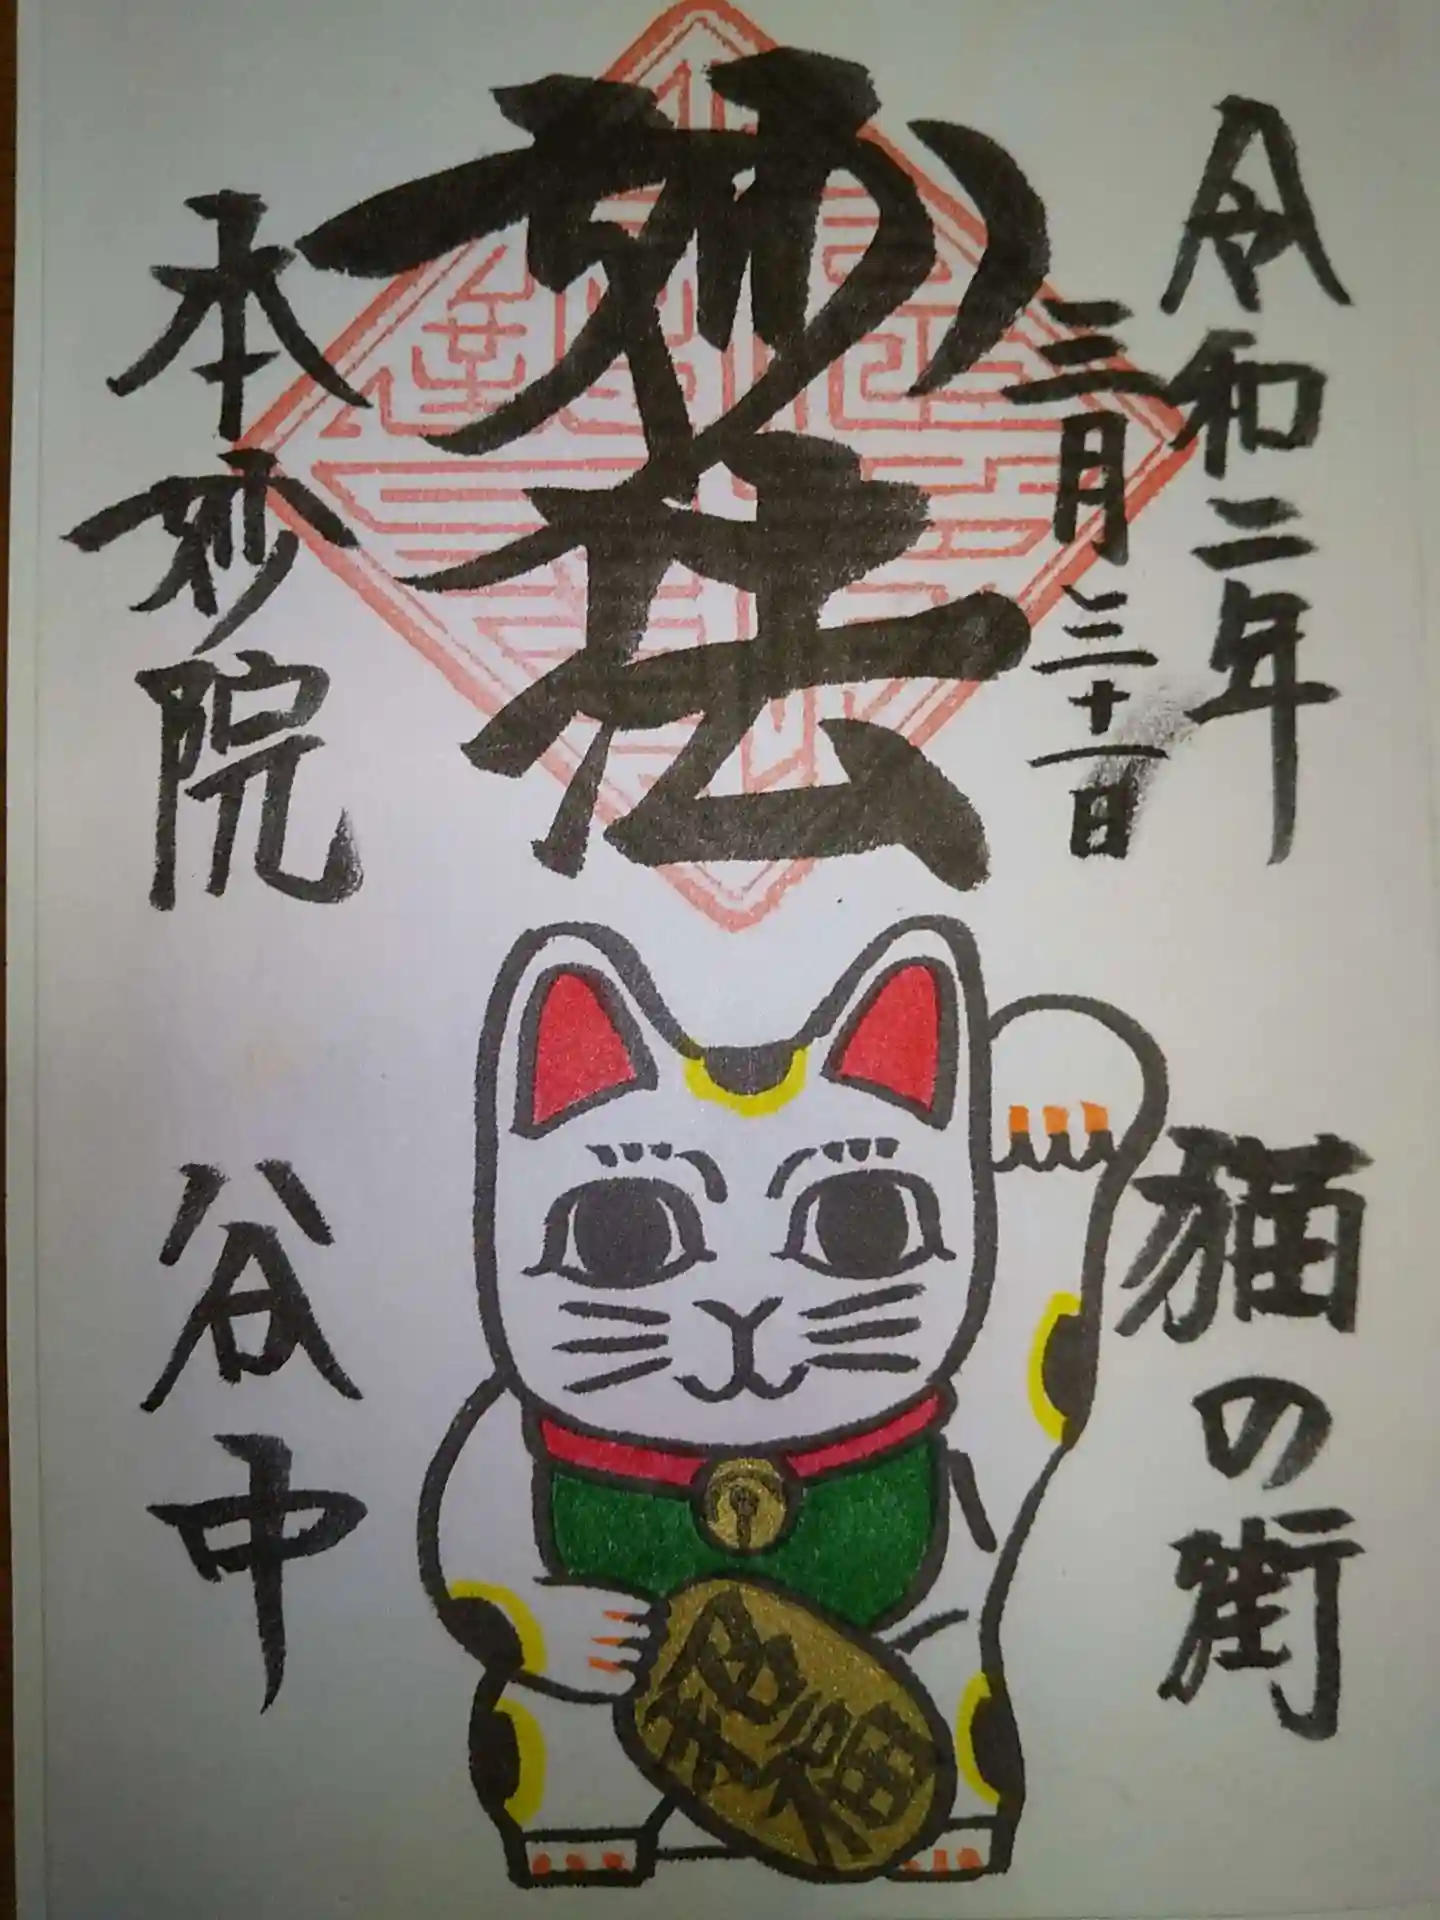 令和二年
三月三十一日
妙法
本妙院
猫の街
谷中
招福